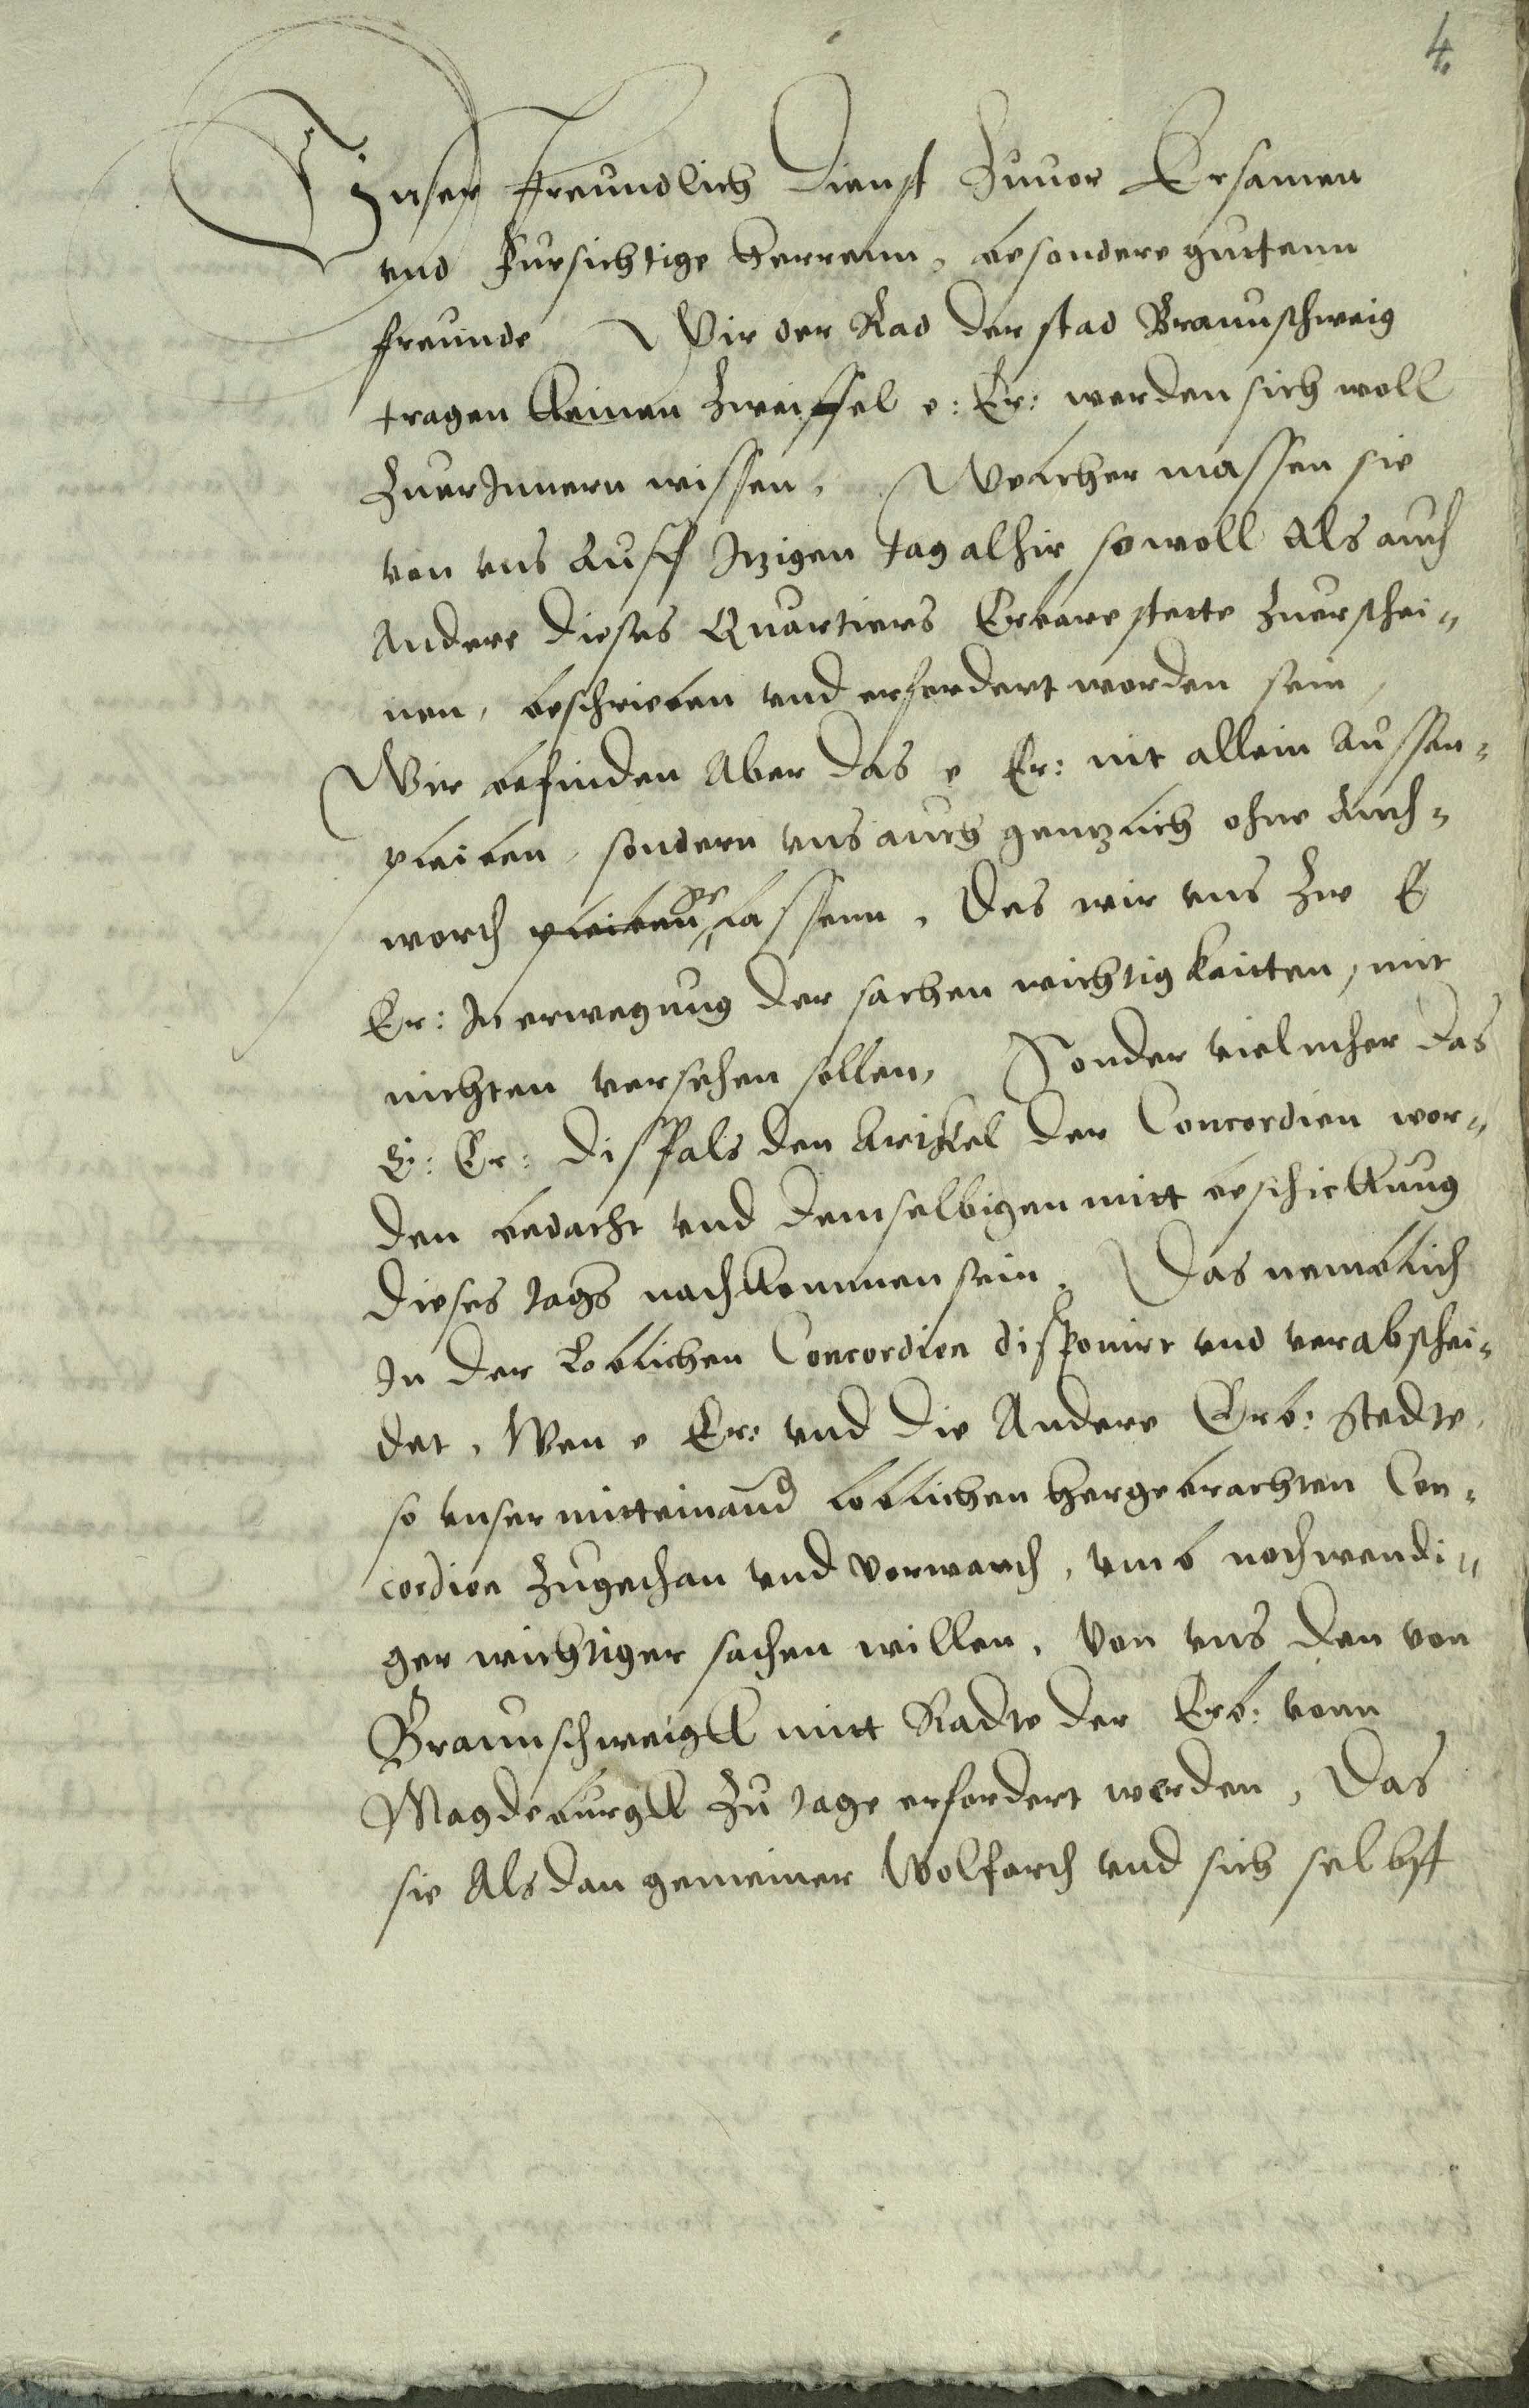 4.
Unser freundlich Dienst Zuuor Ersamen
vnd Fursichtige Herrenn, besondere guttenn
freunde Wir der Rad der stad Braunschweig
tragen keinen Zweiffel e: Er: werden sich woll
ZuerInnern wissen, Welcher massen sie
von vns auff Itzigen tag alhir sowoll als auch
Andere dieses Quartiers Erbare stette Zuerschei-
nen, beschrieben vnd erfordert worden sein,
Wir befinden Aber das e Er: nit allein aussen-
pleiben, sondern vns auch gentzlich ohne Anth-
worth pleiben ge lassenn, Des wir vns Zw E
Er: In erwegung der sachen wichtigkeitten, mit
nichten versehen sollen, Sonder vielmher das
E: Er: dissfals den Artikel der Concordien wor-
den bedacht vnd demselbigen mitt beschickung
dieses tags nachkommen sein, Das nemblich
In der Loblichen Concordien disponirt vnd verabschei-
det, Wen e Er: vnd die Andere Erb: Stedte,
so vnser mitteinand loblichen hergebrachten Con-
cordien Zugethan vnd vorwanth, vmb nothwendi-
ger wichtiger sachen willen, von vns den von
Braunschweigk mitt Radte der Erb: vonn
Magdeburgk Zu tage erfordert werden, Das
sie Als dan gemeiner Wolfarth vnd sich selbst